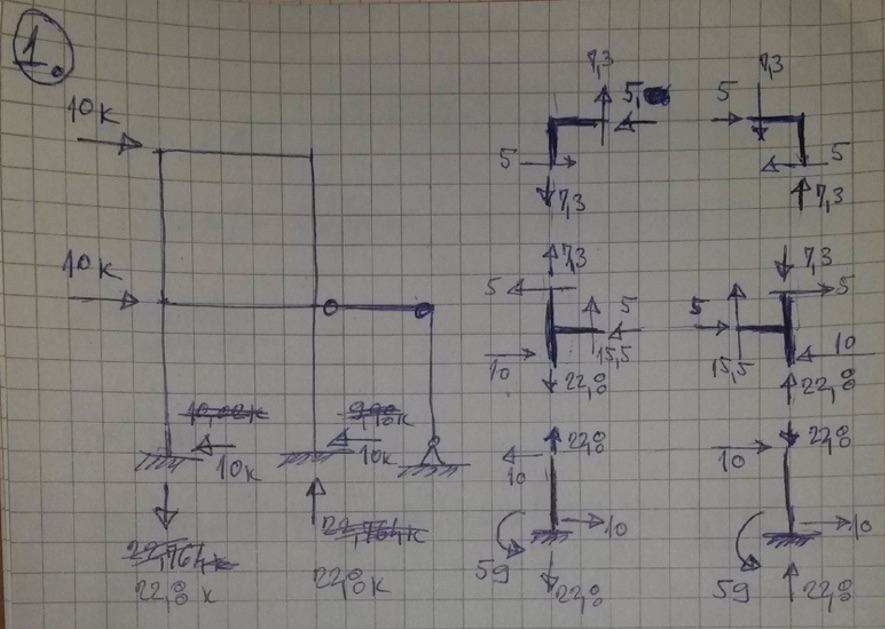 1.
10 K
10 K
10K
10K
22,8 K
22,8 K
7,3
5
5
7,3
7,3
5
5
7,3
7,3
5
5
15,5
10
22,8
7,3
5
5
15,5
10
22,8
22,8
10
10
59
22,8
22,8
10
10
59
22,8